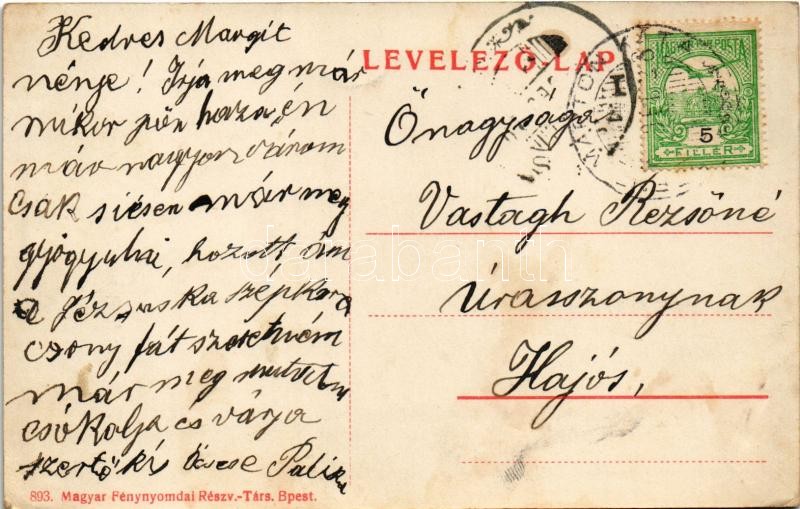 Kedves Margit
nénje! Irja meg már
mikor jön haza én
már nagyon várom
csak siesen már meg
gyógyulni, hozott ám
a Jézuska szép kará
czony fát szeretném
már meg mutatni
csókolja és várja
szerető kis öcscse Palika
893. Magyar Fénynyomdai Részv.-Társ. Bpest.
LEVELEZŐ-LAP
MAGYAR KIR. POSTA
5
FILLÉR
Őnagysága
Vastagh Rezsőné
Úrasszonynak
Hajós,
darabanth